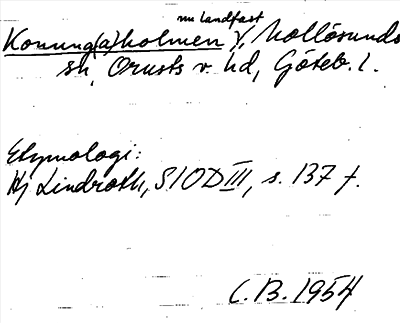 nu landfast
Konung(a)holmen γ, Mollösunds
sn, Orusts v. hd, Göteb. l.
Etymologi:
Hj Lindroth, SIOD III, s. 137 f.
C.B. 1954